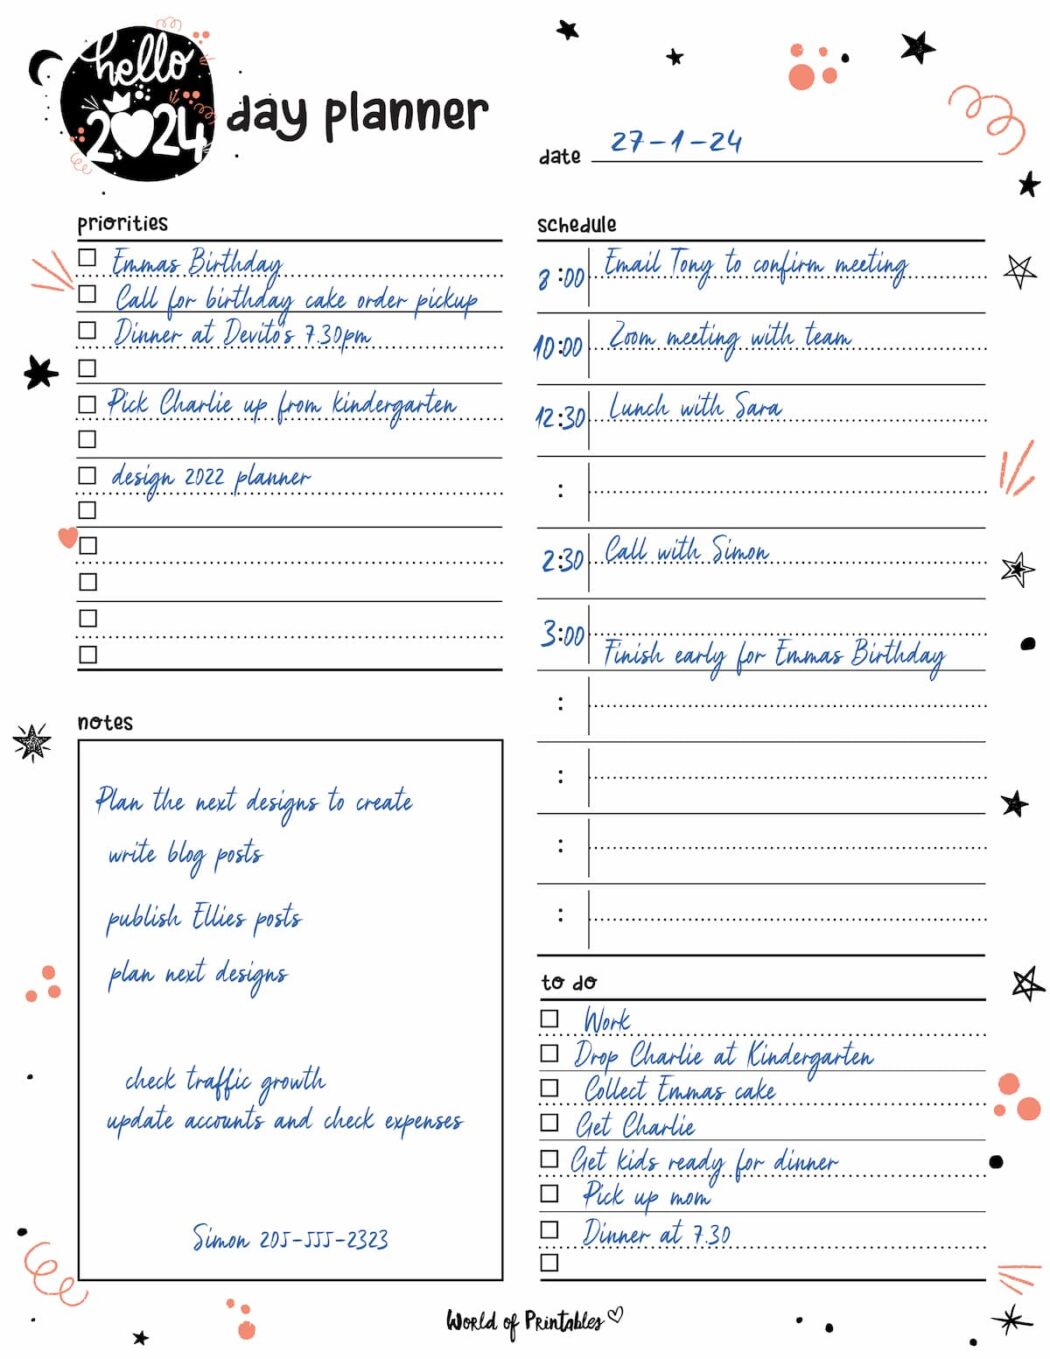 hello
2024
day planner
date 27-1-24
priorities
Emmas Birthday
Call for birthday cake order pickup
Dinner at Devito's 7.30pm
Pick Charlie up from kindergarten
design 2022 planner
notes
Plan the next designs to create
write blog posts
publish Ellies posts
plan next designs
check traffic growth
update accounts and check expenses
Simon 205-555-2323
schedule
8:00 Email Tony to confirm meeting
10:00 Zoom meeting with team
12:30 Lunch with Sara
:
2:30 Call with Simon
3:00 Finish early for Emmas Birthday
:
:
:
:
to do
Work
Drop Charlie at Kindergarten
Collect Emmas cake
Get Charlie
Get kids ready for dinner
Pick up mom
Dinner at 7.30
World of Printables